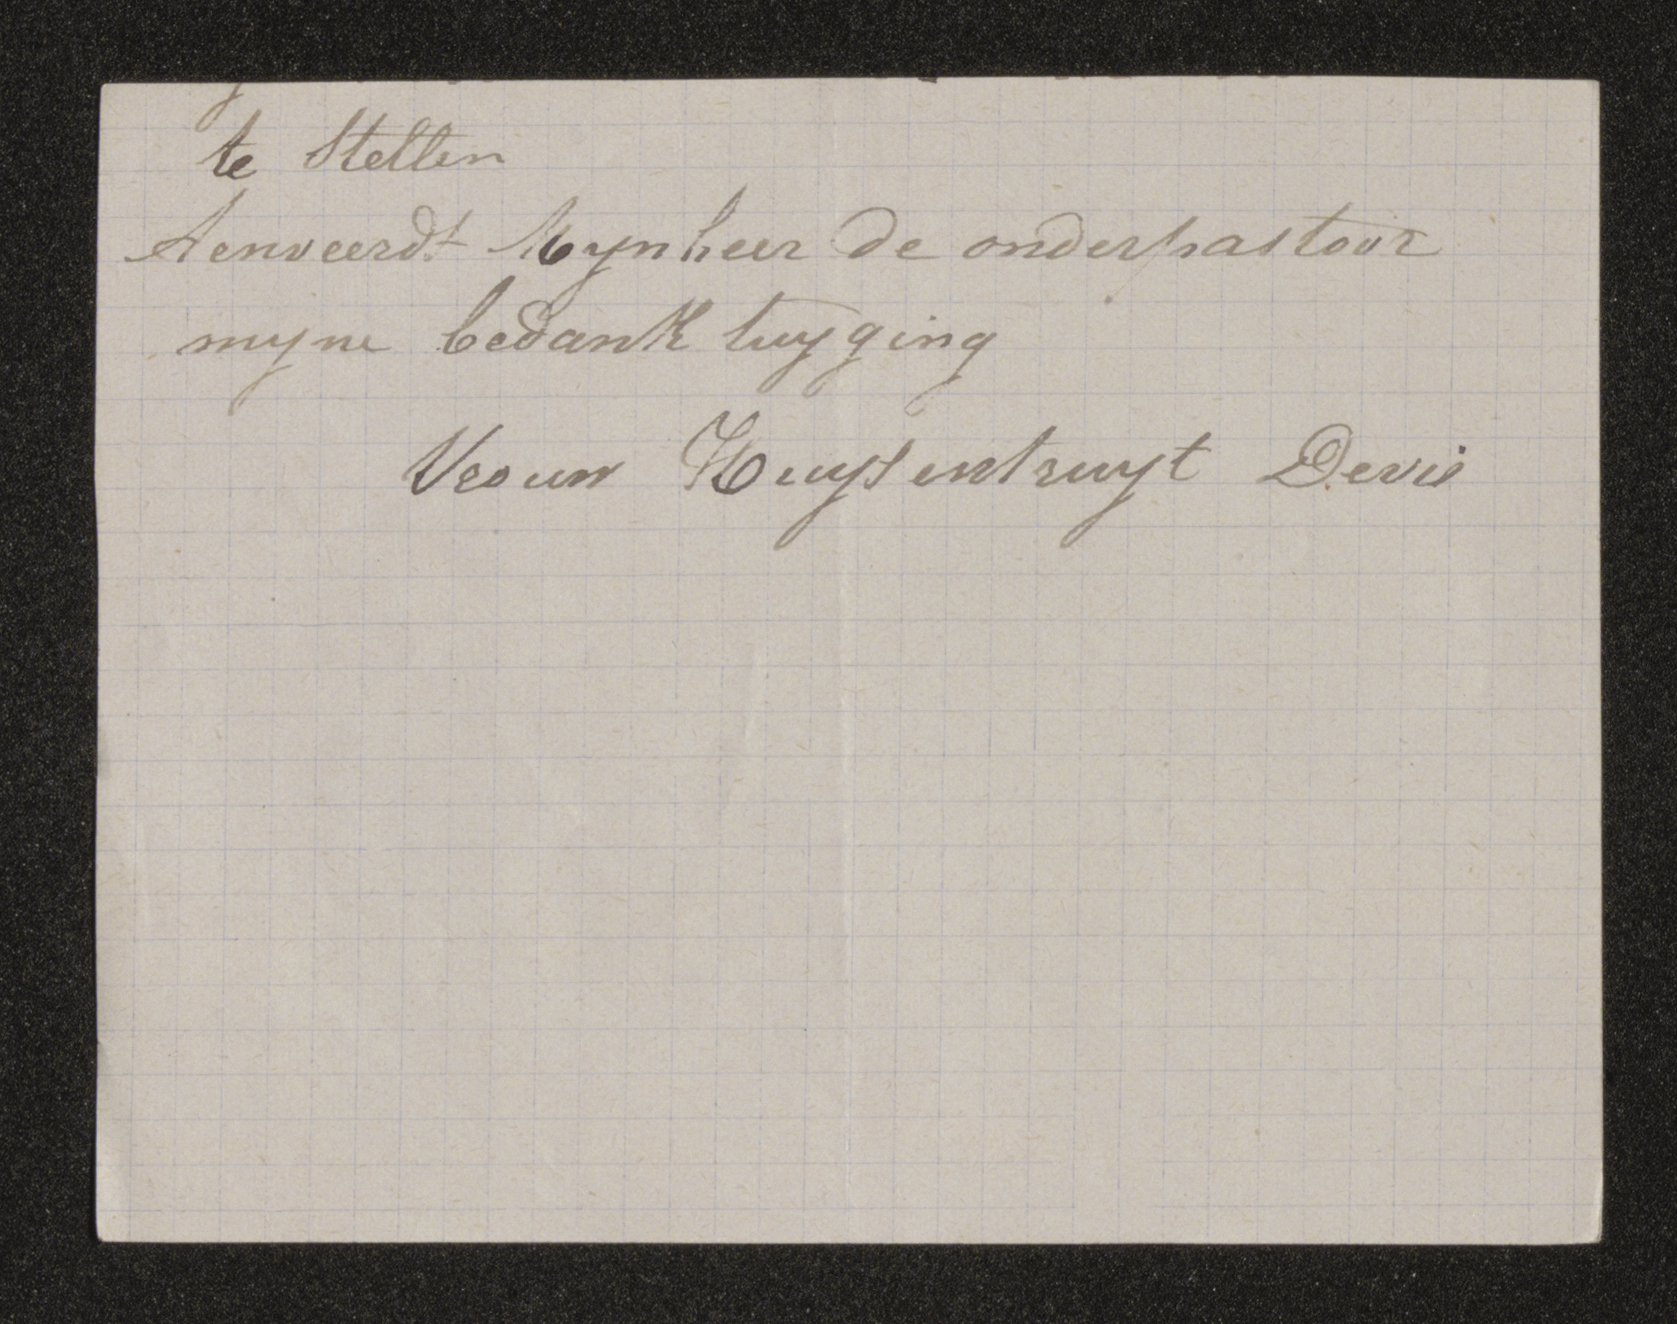 te Stellen
Aenveerdt Mynheer de onderpastoor
myne bedank tuyging
Vrouw Huysentruyt Devis